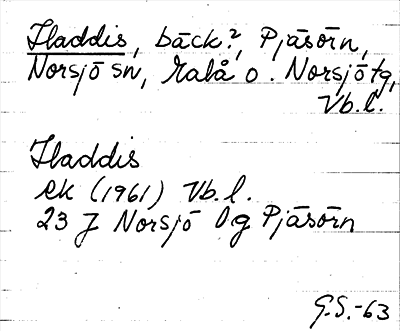 Fladdis, bäck?, Pjäsörn,
Norsjö sn, Malå o. Norsjö tg,
Vb. l.
Fladdis
ek (1961) Vb. l.
23 J Norsjö Og Pjäsörn
G.S.-63